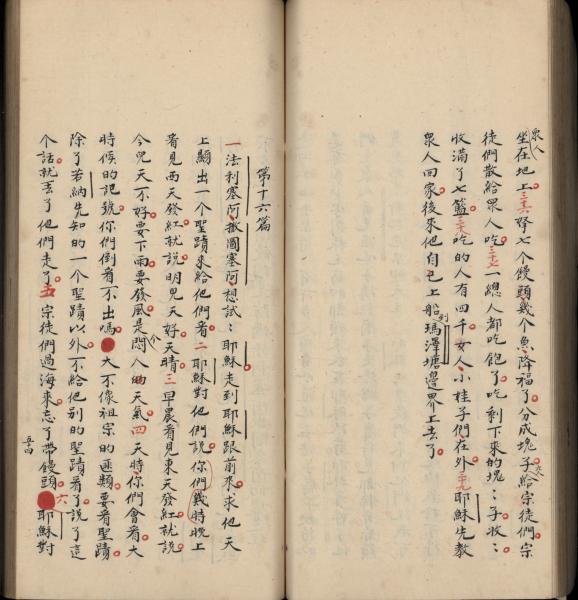 衆人
坐在地上三六拏七个饅頭幾个魚降福了分成塊子給宗徒們宗
徒們散給衆人吃三七一總人都吃飽了吃剩下來的塊〻子收〻
收滿了七籃三八吃的人有四千女人小桂子們在外三九耶穌先教
衆人回家後來他自己上船瑪澤塘邊界上去了
到
第十六篇
一法利塞阿撒圖塞阿想試〻耶穌走到耶穌跟前來求他天
上顯出一个聖蹟來給他們看二耶穌對他們說你們幾時晚上
看見西天發紅就說明兒天好天晴三早晨看見東天發紅就說
今兒天不好要下雨要發風是悶人的天氣四天時你們會看大
个
時候的記號你們倒看不出嗎大不像祖宗的匪類要看聖蹟
除了若納先知的一个聖蹟以外不給他別的聖蹟看了說了這
个話就丟了他們走了五宗徒們過海來忘了帶饅頭六耶穌對